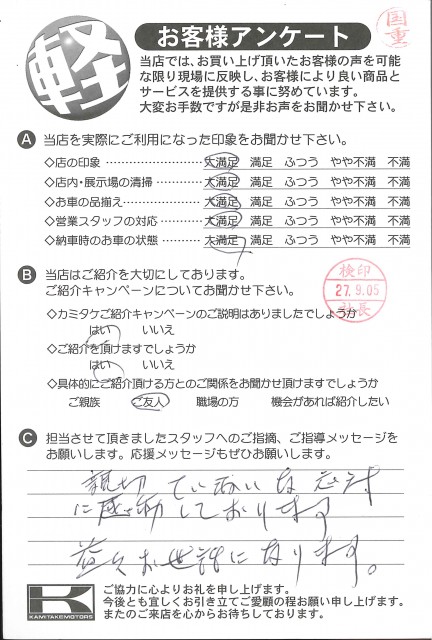 軽
お客様アンケート
国重
当店では、お買い上げ頂いたお客様の声を可能
な限り現場に反映し、お客様により良い商品と
サービスを提供する事に努めています。
大変お手数ですが是非お声をお聞かせ下さい。
A 当店を実際にご利用になった印象をお聞かせ下さい。
◇店の印象 大満足 満足 ふつう やや不満 不満
◇店内・展示場の清掃 大満足 満足 ふつう やや不満 不満
◇お車の品揃え 大満足 満足 ふつう やや不満 不満
◇営業スタッフの対応 大満足 満足 ふつう やや不満 不満
◇納車時のお車の状態 大満足 満足 ふつう やや不満 不満
B 当店はご紹介を大切にしております。
ご紹介キャンペーンについてお聞かせ下さい。
検印
27.9.05
社長
◇カミタケご紹介キャンペーンのご説明はありましたでしょうか
はい いいえ
◇ご紹介を頂けますでしょうか
はい いいえ
◇具体的にご紹介頂ける方とのご関係をお聞かせ頂けますでしょうか
ご親族 ご友人 職場の方 機会があれば紹介したい
C 担当させて頂きましたスタッフへのご指摘、ご指導メッセージを
お願いします。応援メッセージもぜひお願いします。
親切 ていねいな応対
に感動しております
益々お世話になります。
K
KAMITAKEMOTORS
ご協力に心よりお礼を申し上げます。
今後とも宜しくお引き立てご愛顧の程お願い申し上げます。
またのご来店を心からお待ちしております。